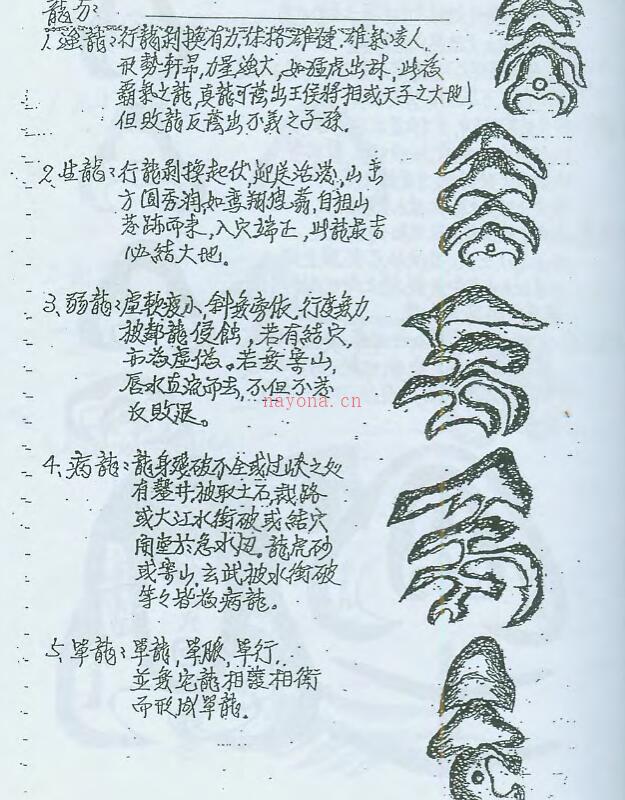 龍分:
1. 強龍:行龍剝換有力,体格雄健,雄氣凌人,
形勢軒昂,力量雄大,如猛虎出林,此為
霸氣之龍,真龍可蔭出王侯將相或天子之大地,
但敗龍反蔭出不義之子孫。
2. 生龍:行龍剝換起伏,迎送活潑,山巒
方圓秀潤,如鸞翔鳳翥,自祖山
落跡而來,入穴端正,此龍最吉
必結大地。
3. 弱龍:虛軟瘦小,斜無旁依,行度無力,
被鄰龍侵蝕,若有結穴,
亦為虛假。若無案山,
唇水直流而去,不但不
反敗退。
nayona.cn
4. 病龍:龍身殘破不全或過峽之处
有鑿井,被取土石,裁路
或大江水衝破,或結穴
明堂於急水,龍虎砂
或案山,玄武被水衝破
等々皆為病龍。
5. 單龍:單龍,單脈,單行,
並無它龍相護相衛
而形成單龍。